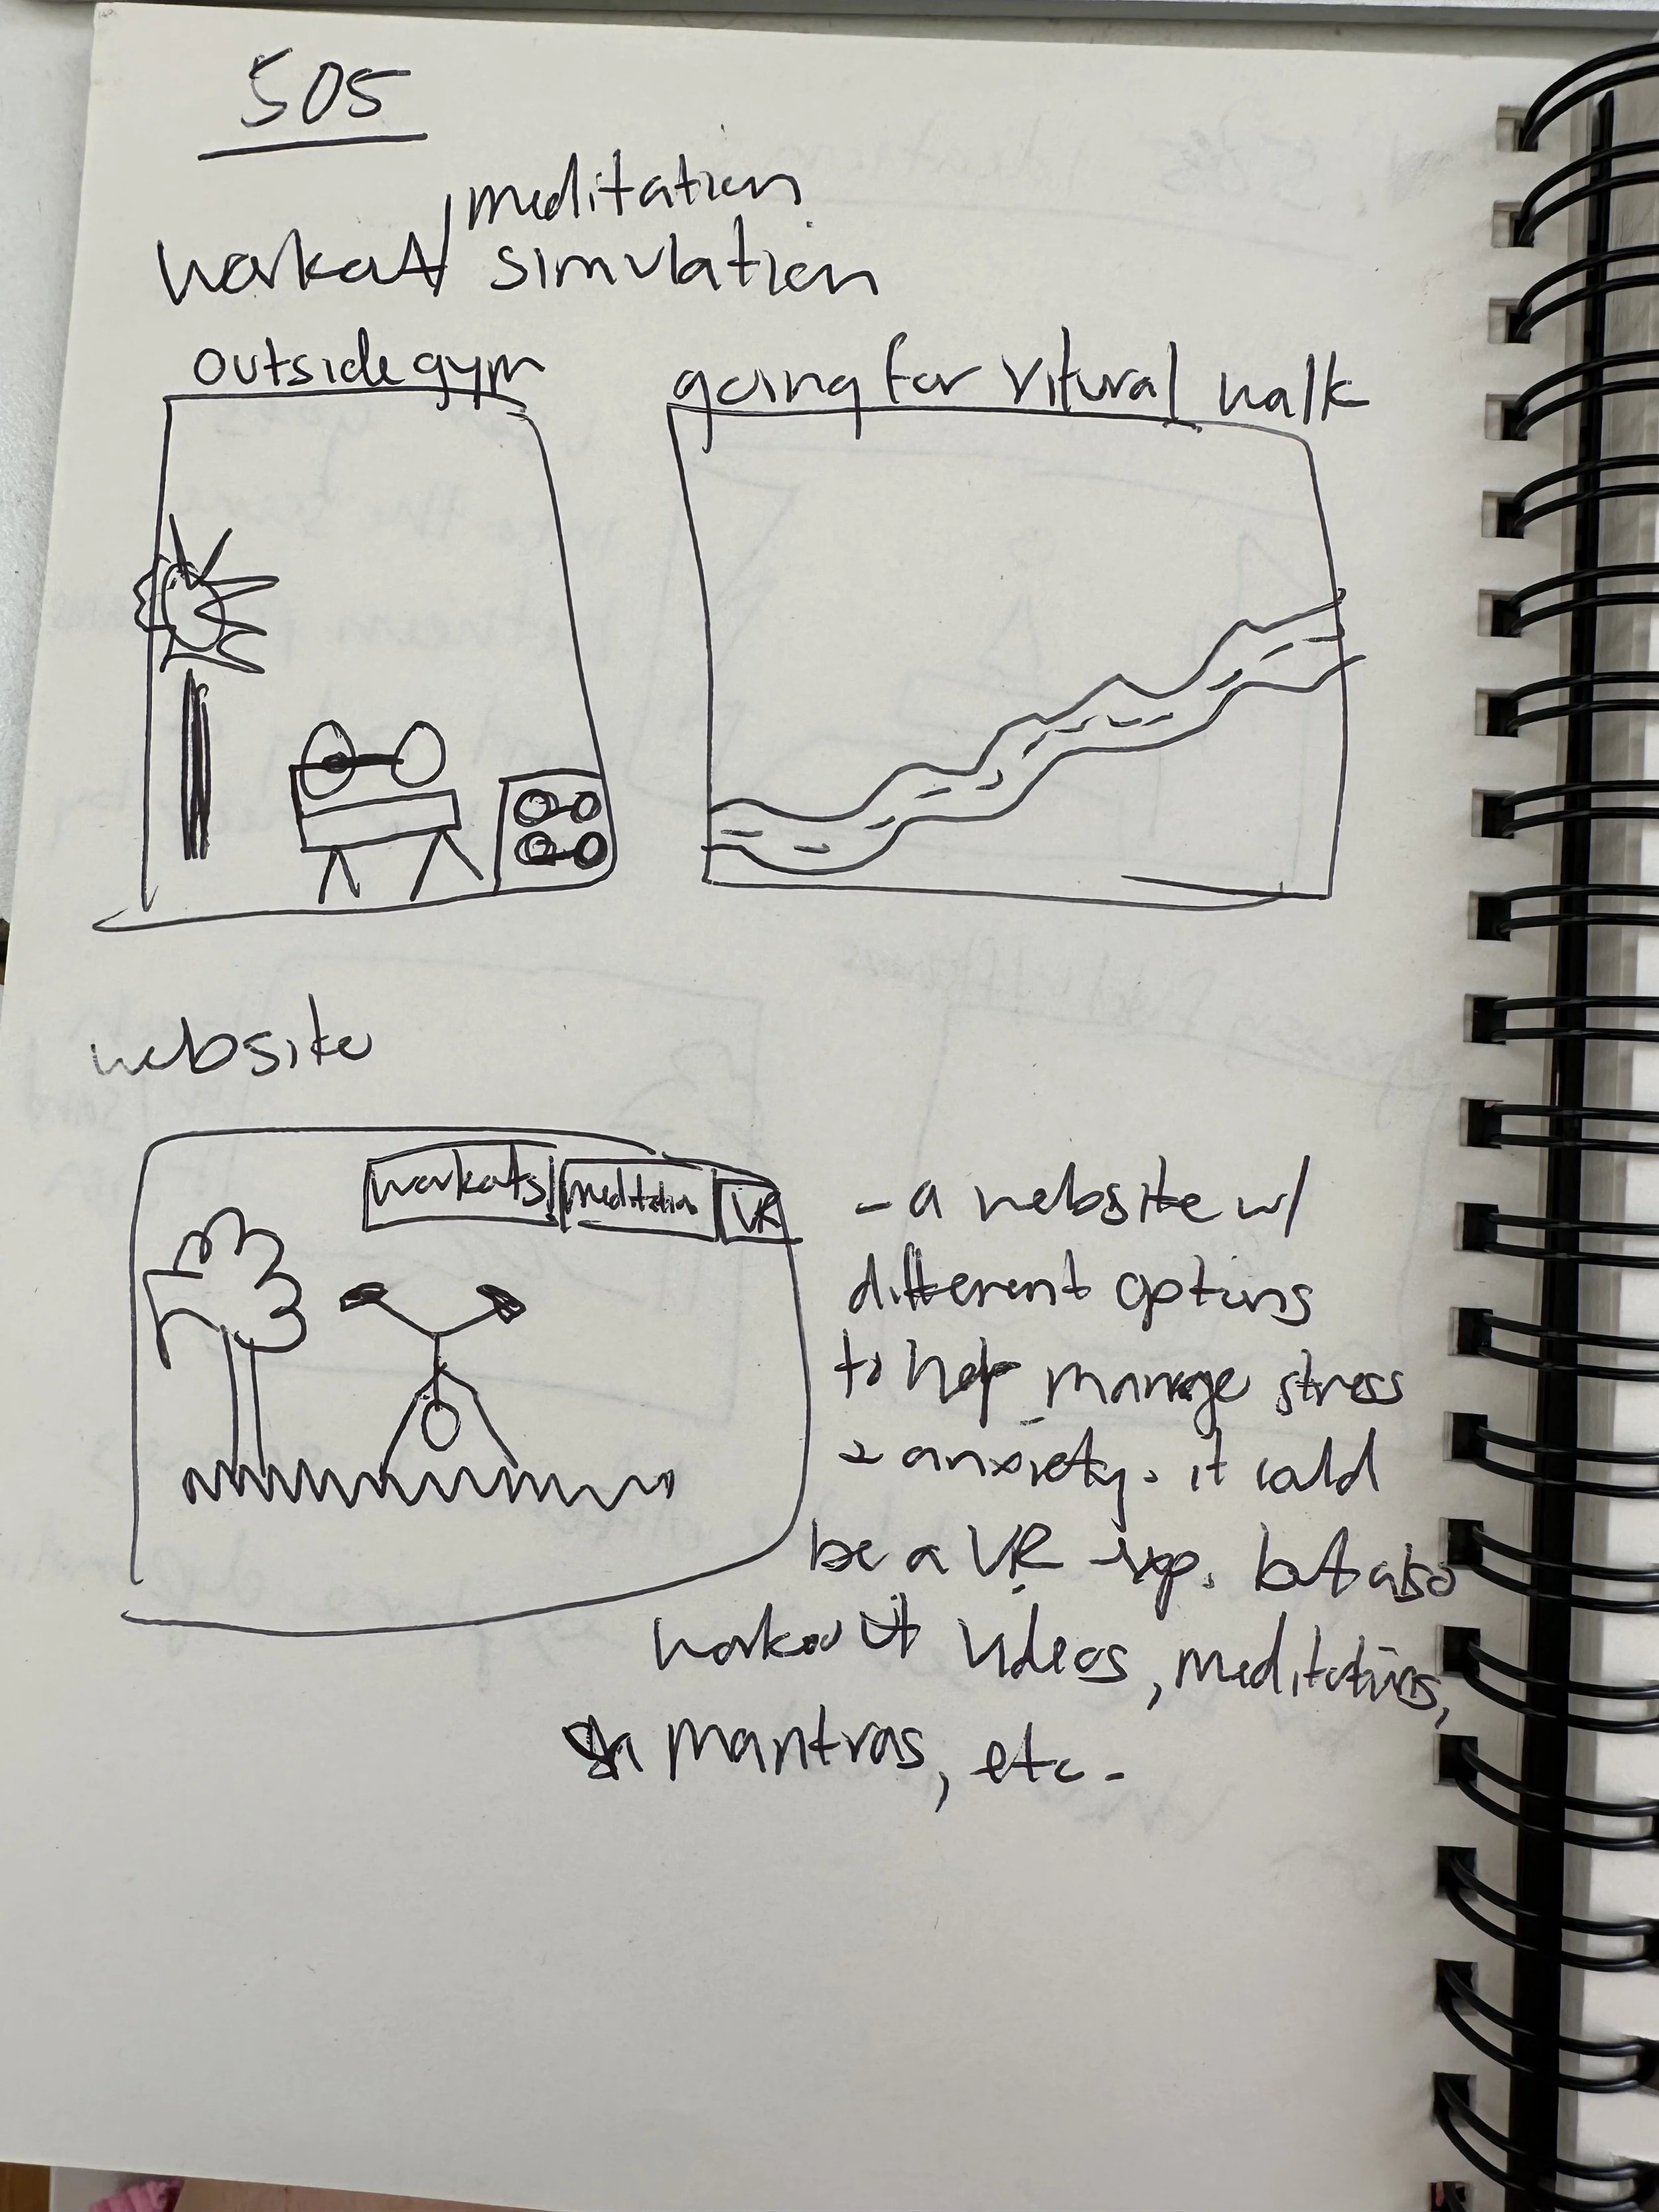 505
meditation
workout/ simulation
outside gym
going for vitural walk
website
workouts
meditation
VR
- a website w/
different options
to help manage stress
& anxiety. it could
be a VR exp. but also
workout videos, meditations,
mantras, etc.